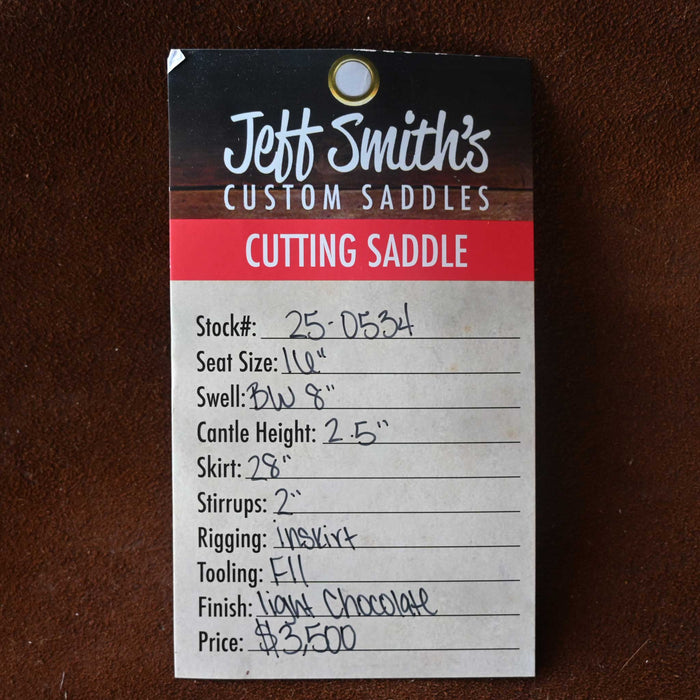 Jeff Smith's
CUSTOM SADDLES
CUTTING SADDLE
Stock#: 25-0534
Seat Size: 16"
Swell: BW 8"
Cantle Height: 2.5"
Skirt: 28"
Stirrups: 2"
Rigging: inskirt
Tooling: F11
Finish: light Chocolate
Price: $3,500